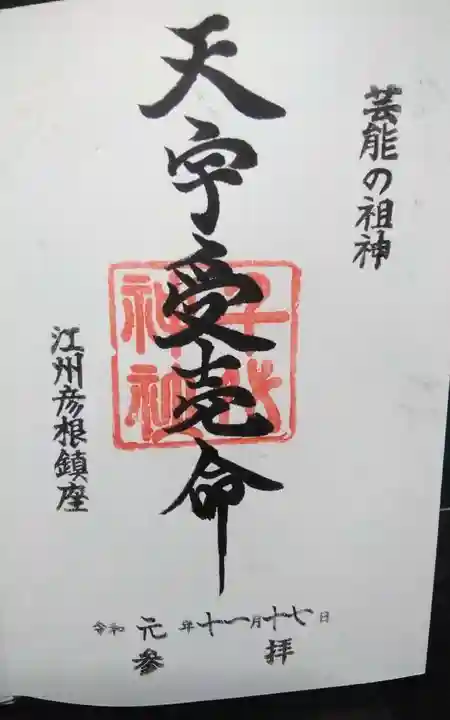 芸能の祖神
天宇受売命
千代
神社
江州彦根鎮座
令和元年十一月十七日
参拝